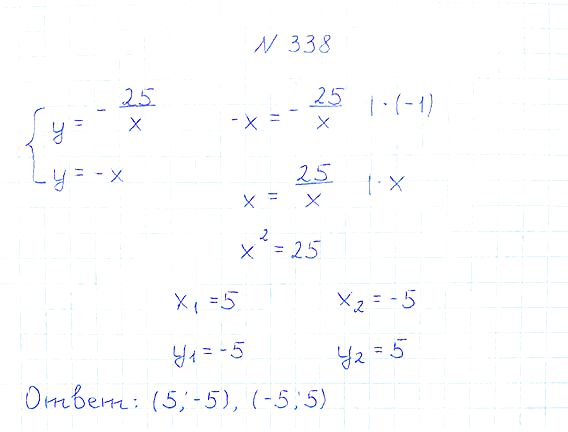 N 338
{ y = - 25/x    -x = - 25/x  | · (-1)
y = -x    x = 25/x  | · x
x² = 25
x₁ = 5    x₂ = -5
y₁ = -5    y₂ = 5
Ответ: (5; -5), (-5; 5)